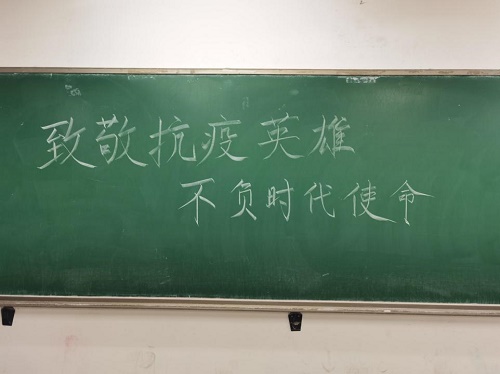 致敬抗疫英雄
不负时代使命